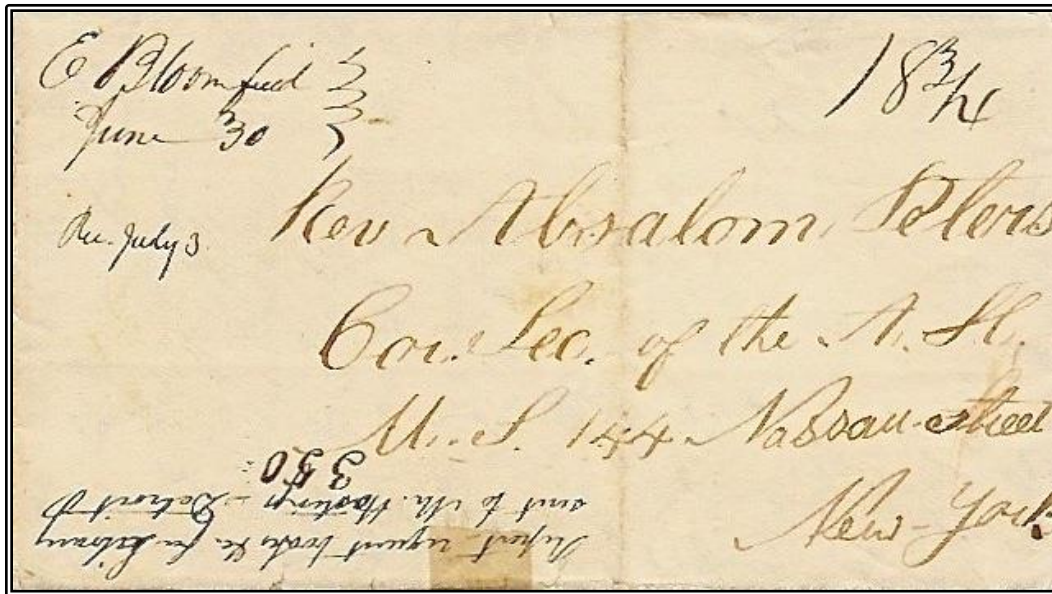 E Bloomfield
June 30
18 3/4
Rec. July 3.
Rev. Absalom Peters
Cor. Sec. of the A. H.
M. S. 144 Nassau-street
New-York
350
Report - request books &c. for Library
sent to Mr. Hastings - Detroit